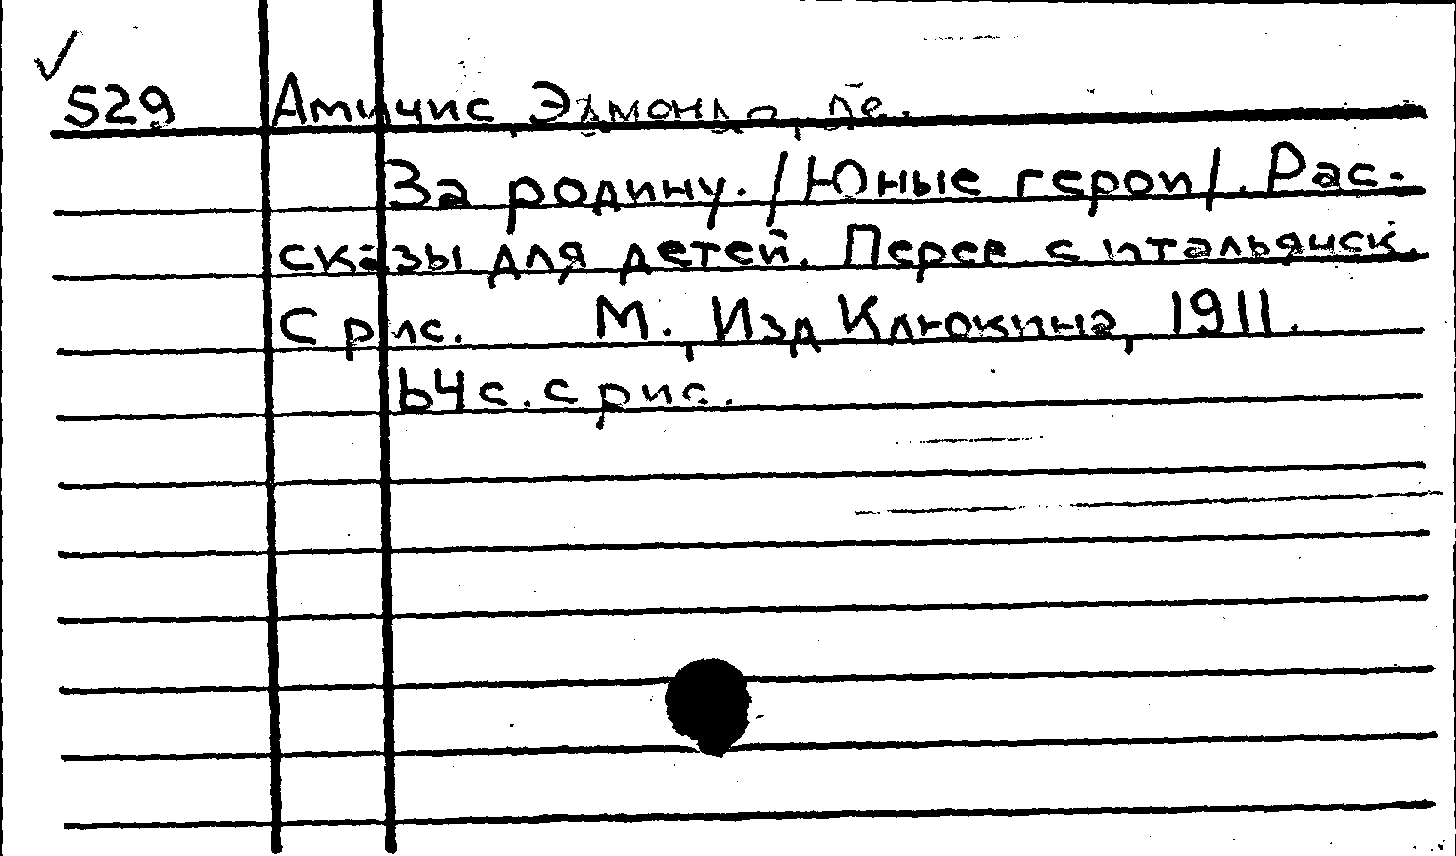 ✓
529 Амичис, Эдмондо, де.
За родину. /Юные герои/. Рас-
сказы для детей. Перев. с итальянск.
С рис. М., Изд. Клюкина, 1911.
64 с. с рис.